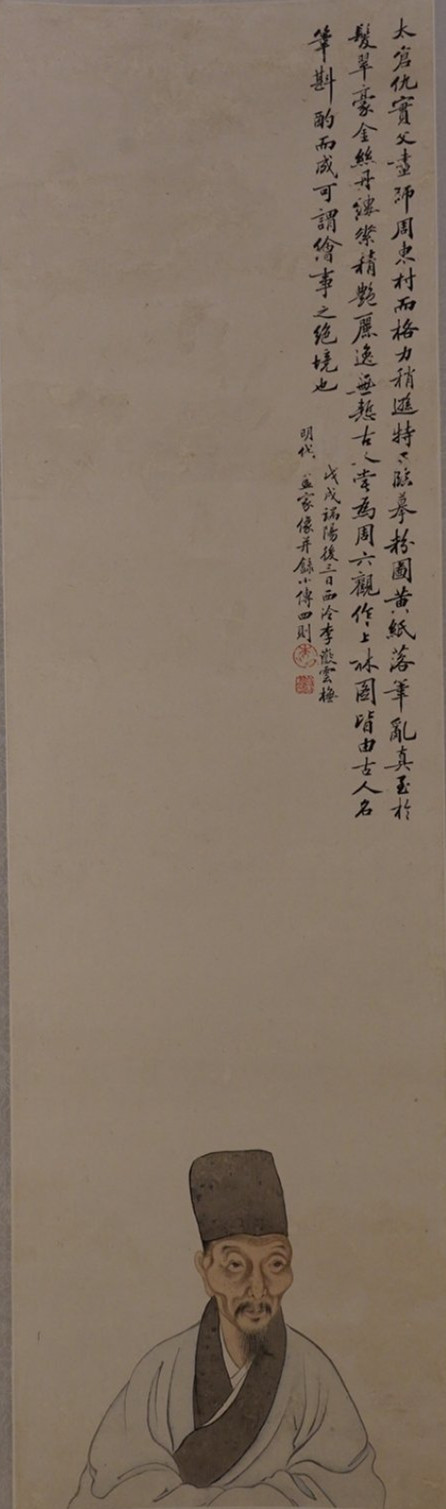 太倉仇實父畫師周東村而格力稍遜特工臨摹粉圖黃紙落筆亂真至於
髮翠豪金絲丹縷縈精艷麗逸無慙古人嘗為周六觀作上林圖皆由古人名
筆斟酌而成可謂繪事之絕境也
戊戌端陽後三日西泠李 雲
明代 家像并錄小傳四則